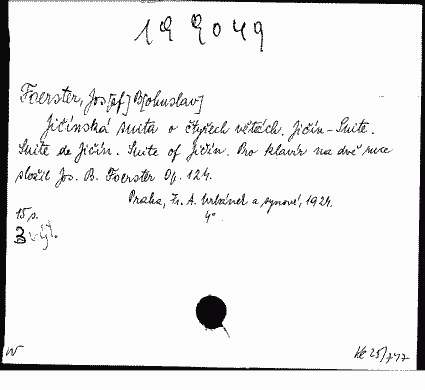 199049
Foerster, Jos[ef] B[ohuslav]
Jičínská suita o čtyřech větách. Jičín-Suite.
Suite de Jičín. Suite of Jičín. Pro klavír na dvě ruce
složil Jos. B. Foerster Op. 124.
Praha, Fr. A. Urbánek a synové, 1924.
15 s. 4°
3 výt.
W He 25/747